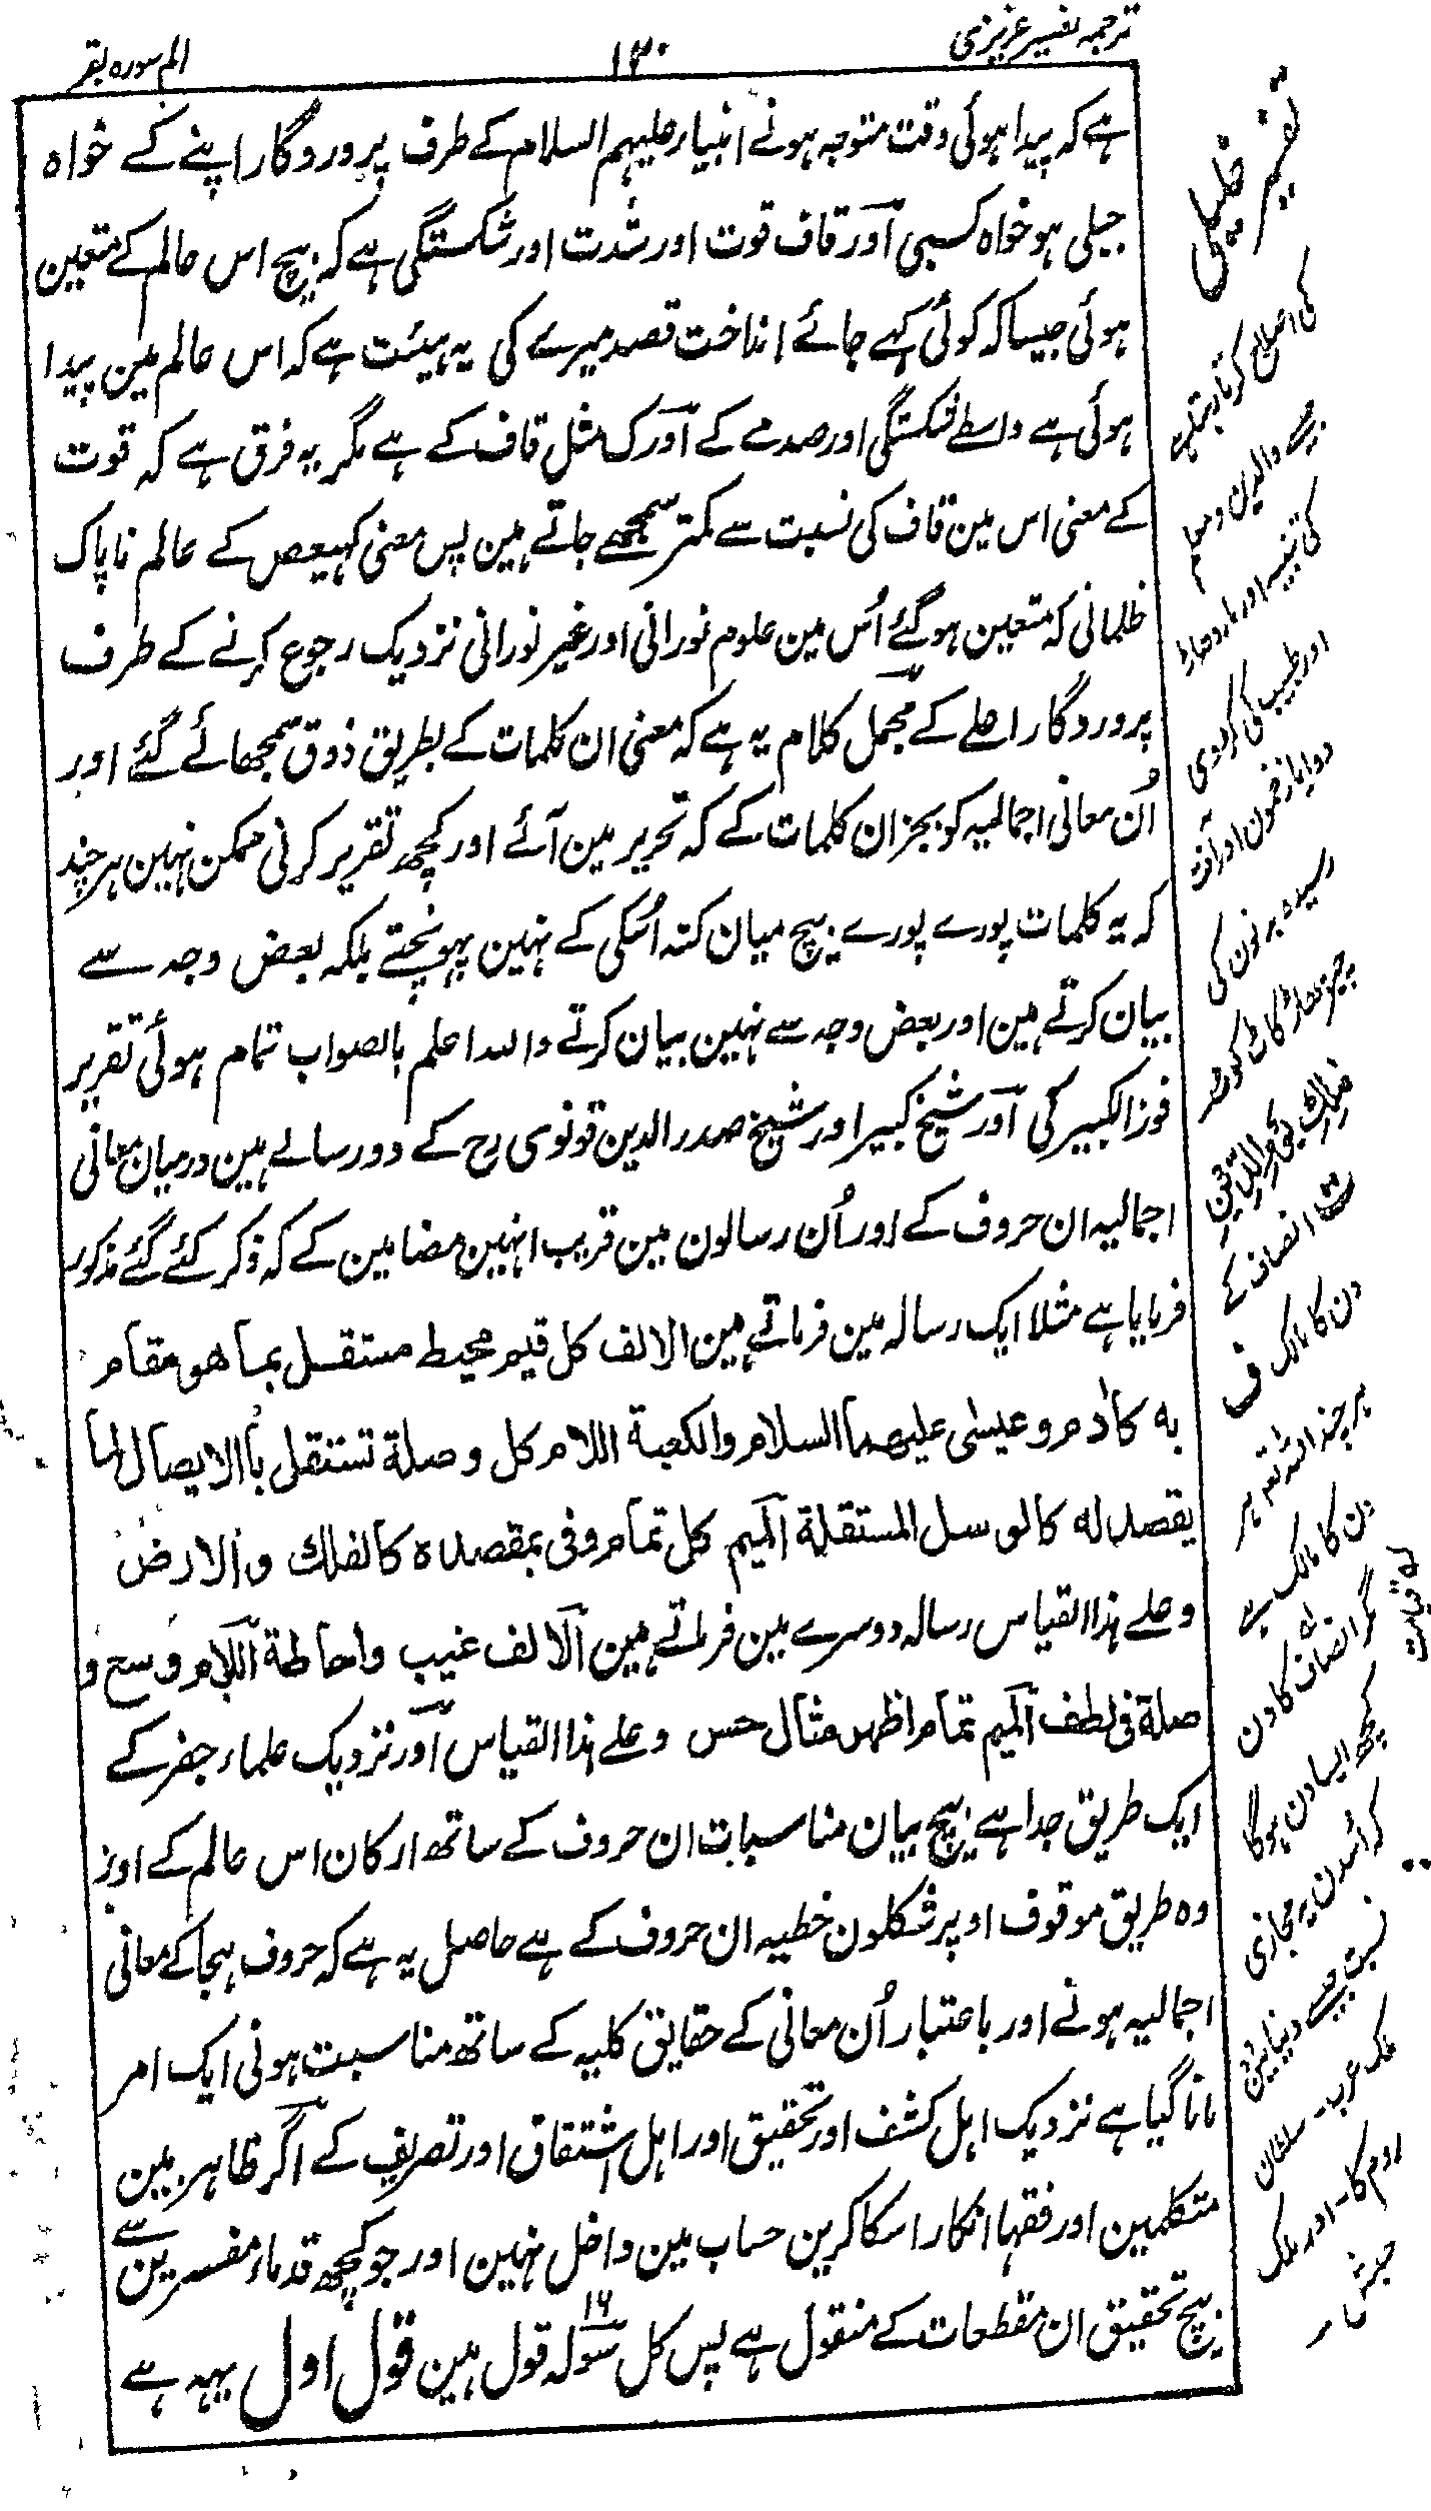 ترجمہ تفسیر عزیزی
١٣٠
الم سورہ بقر
ہے کہ پیدا ہوئی وقت متوجہ ہونے انبیاء علیہم السلام کے طرف پروردگار اپنے کے خواہ
جبلی ہو خواہ کسبی اور قاف قوت اور شدت اور شکستگی ہے کہ بیچ اس عالم کے متعین
ہوئی جیسا کہ کوئی کہے جائے انداخت قصد میرے کی یہ ہیئت ہے کہ اس عالم مین پیدا
ہوئی ہے واسطے شکستگی اور صدمے کے اور ک مثل قاف کے ہے مگر یہ فرق ہے کہ قوت
کے معنی اس مین قاف کی نسبت سے کمتر سمجھے جاتے ہین پس معنی کہیعص کے عالم ناپاک
ظلمانی کہ متعین ہو گئے اُس مین علوم نورانی اور غیر نورانی نزدیک رجوع کرنے کے طرف
پروردگار اعلے کے مجمل کلام یہ ہے کہ معنی ان کلمات کے بطریق ذوق سمجھائے گئے اور
اُن معانی اجمالیہ کو بجز ان کلمات کے کہ تحریر مین آئے اور کچھ تقریر کرنی ممکن نہین ہر چند
کہ یہ کلمات پورے پورے بیچ میان کنہ اُسکی کے نہین پہونچتے بلکہ بعض وجہ سے
بیان کرتے ہین اور بعض وجہ سے نہین بیان کرتے واللہ اعلم بالصواب تمام ہوئی تقریر
فوز الکبیر کی اور شیخ کبیر اور شیخ صدر الدین قونوی رح کے دو رسالے ہین درمیان معانی
اجمالیہ ان حروف کے اور اُن رسالون مین قریب انہین مضامین کے کہ ذکر کئے گئے مذکور
فرمایا ہے مثلا ایک رسالہ مین فرماتے ہین الالف کل قیم محیط مستقل بما هو مقام
به کادم و عیسی علیهما السلام والکعبة اللام کل وصلة تستقل بالایصال لما
یقصد له کالوسل المستقلة المیم کل تمام وفی بمقصده کالفلك والارض
وعلے ہذا القیاس رسالہ دوسرے مین فرماتے ہین الالف غیب واحاطة اللام وسع و
صلة فی لطف المیم تمام اظهر مثال حس وعلے ہذا القیاس اور نزدیک علماء جفر کے
ایک طریق جدا ہے بیچ بیان مناسبات ان حروف کے ساتھ ارکان اس عالم کے اور
وہ طریق موقوف اوپر شکلون خطیہ ان حروف کے ہے حاصل یہ ہے کہ حروف ہجا کے معانی
اجمالیہ ہونے اور باعتبار اُن معانی کے حقایق کلیہ کے ساتھ مناسبت ہونی ایک امر
مانا گیا ہے نزدیک اہل کشف اور تحقیق اور اہل اشتقاق اور تصریف کے اگر ظاہر بین
متکلمین اور فقہا انکار اسکا کرین حساب مین داخل نہین اور جو کچھ قدماء مفسرین سے
بیچ تحقیق ان مقطعات کے منقول ہے پس کل سولہ ١٦ قول ہین قول اول یہہ ہے
تفسیر خلیلی
کی اصلاح کرتا رہتا ہے
جیسے والدین و معلم
کی تنبیہ اور مار دھاڑ
اور طبیب کی کڑوی
دوا یا زخمون اور آفت
رسیدہ بدنون کی
چیر پھاڑ کاٹ کوٹ
مالك یوم الدین
ت انصاف کے
دن کا مالک ف
ہر چند اللہ تو ہر
دن کا مالک ہے
مگر انصاف کا دن
کچھ ایسا دن ہوگا
کہ اُسدن یہ مجازی
نسبت جیسے دنیا مین
ملک عرب - سلطان
روم کا - اور ملک
لہ قیامت